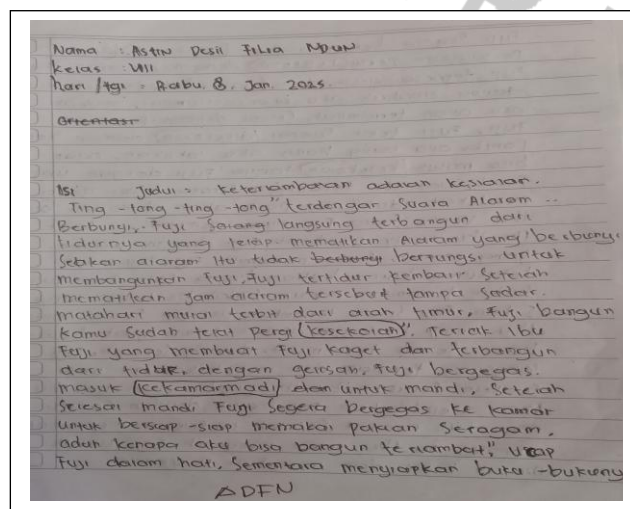 Nama : Astin Desil Filia NDUN
Kelas : VIII
hari /tgl : Rabu. 8. Jan. 2025.
Orientasi
Isi Judul : Keterlambatan adalah kesialan.
Ting -tong -ting -tong" terdengar suara Alarom ..
Berbunyi, Fuji langsung terbangun dari
tidurnya yang tetap mematikan Alarom yang berbunyi.
Seakan alarom itu tidak berbuny berfungsi untuk
membangunkan Fuji, Fuji tertidur kembali setelah
mematikan jam alarom tersebut tampa sadar.
matahari mulai terbit dari arah timur, Fuji bangun
kamu sudah telat pergi (kesekolah)". Teriak Ibu
Fuji yang membuat Fuji kaget dan terbangun
dari tidur, dengan gelisah, Fuji bergegas.
masuk (kekamarmadi) dan untuk mandi, Setelah
Selesai mandi Fuji Segera bergegas ke kamar
untuk bersiap -siap memakai pakian seragam.
aduh kenapa aku bisa bangun terlambat", ucap
Fuji dalam hati, Sementara menyiapkan buku -bukuny
ADFN